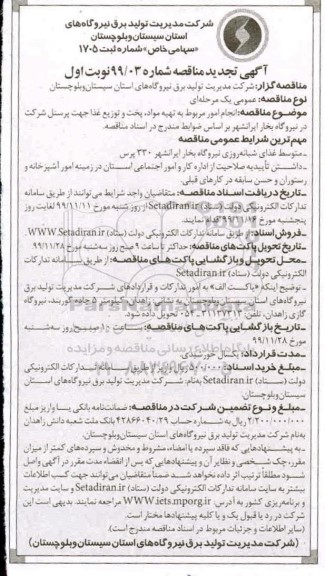 شرکت مدیریت تولید برق نیروگاه‌های
استان سیستان وبلوچستان
«سهامی خاص» شماره ثبت ۱۷۰۵
آگهی تجدید مناقصه شماره ۹۹/۰۳ نوبت اول
مناقصه گزار: شرکت مدیریت تولید برق نیروگاه‌های استان سیستان‌وبلوچستان
نوع مناقصه: عمومی یک مرحله‌ای
موضوع مناقصه: انجام امور مربوط به تهیه مواد، پخت و توزیع غذا جهت پرسنل شرکت
در نیروگاه بخار ایرانشهر بر اساس ضوابط مندرج در اسناد مناقصه.
مهم ترین شرایط عمومی مناقصه
ـ متوسط غذای شبانه‌روزی نیروگاه بخار ایرانشهر ۳۳۰ پرس
ـ داشتن تأییدیه صلاحیت از اداره کار و امور اجتماعی استان در زمینه امور آشپزخانه و
رستوران و حسن سابقه در کارهای قبلی.
ـ تاریخ دریافت اسناد مناقصه: متقاضیان واجد شرایط می توانند از طریق سامانه
تدارکات الکترونیکی دولت (ستاد) Setadiran.ir از روز شنبه مورخ ۹۹/۱۱/۱۱ لغایت روز
پنجشنبه مورخ ۹۹/۱۱/۱۶ اقدام نمایند.
ـ فروش اسناد: از طریق سامانه تدارکات الکترونیکی دولت (ستاد) WWW.Setadiran.ir
ـ تاریخ تحویل پاکت‌های مناقصه: حداکثر تا ساعت ۹ صبح روز سه‌شنبه مورخ ۹۹/۱۱/۲۸
ـ محل تحویل و بازگشایی پاکت های مناقصه: از طریق سامانه تدارکات
الکترونیکی دولت (ستاد) Setadiran.ir
ـ توضیح اینکه «پاکت الف» به امور تدارکات و قراردادهای شرکت مدیریت تولید برق
نیروگاه‌های استان سیستان وبلوچستان به نشانی زاهدان، کیلومتر ۵ جاده خوربند، نیروگاه
گازی زاهدان، تلفن: ۳۱۱۳۷۲۱۳-۰۵۴ تحویل داده شود.
ـ تاریخ بازگشایی پاکت‌های مناقصه: ساعت ۱۰ صبح روز سه‌شنبه
مورخ ۹۹/۱۱/۲۸
ـ مدت قرارداد: یکسال خورشیدی.
ـ مبلغ خرید اسناد: ۵۰۰/۰۰۰ ریال واریز از طریق سامانه تدارکات الکترونیکی
دولت (ستاد) Setadiran.ir به‌نام: شرکت مدیریت تولید برق نیروگاه‌های استان
سیستان‌وبلوچستان.
ـ مبلغ و نوع تضمین شرکت در مناقصه: ضمانت‌نامه بانکی یا واریز مبلغ
۲/۲۰۰/۰۰۰/۰۰۰ ریال به شماره حساب بانک ملت شعبه دانش زاهدان
به‌نام شرکت مدیریت تولید برق نیروگاه‌های استان سیستان‌وبلوچستان.
ـ به پیشنهادهایی که فاقد سپرده یا امضاء، مشروط و مخدوش و سپرده‌های کمتر از میزان
مقرر، چک شخصی و نظایر آن و پیشنهادهایی که پس از انقضاء مدت مقرر در آگهی واصل
شود مطلقاً ترتیب اثر داده نخواهد شد. ضمناً متقاضیان می‌توانند جهت کسب اطلاعات
بیشتر به سایت سامانه تدارکات الکترونیکی دولت (ستاد) Setadiran.ir و سایت مدیریت
و برنامه‌ریزی کشور به آدرس: WWW.iets.mporg.ir مراجعه نمایند. بدیهی است این
شرکت در رد یا قبول یک و یا کلیه پیشنهادها مختار است.
(سایر اطلاعات و جزئیات مربوط در اسناد مناقصه مندرج است).
(شرکت مدیریت تولید برق نیروگاه‌های استان سیستان وبلوچستان)